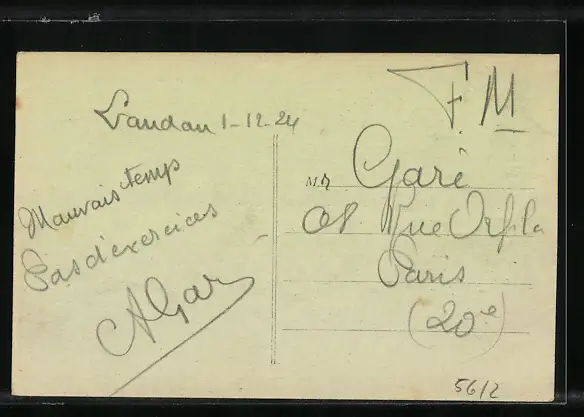 Landau 1-12-24
Mauvais temps
Pas d'exercices
AGar
F. M
Mr Garé
Rue Orfila
Paris
(20e)
56/2